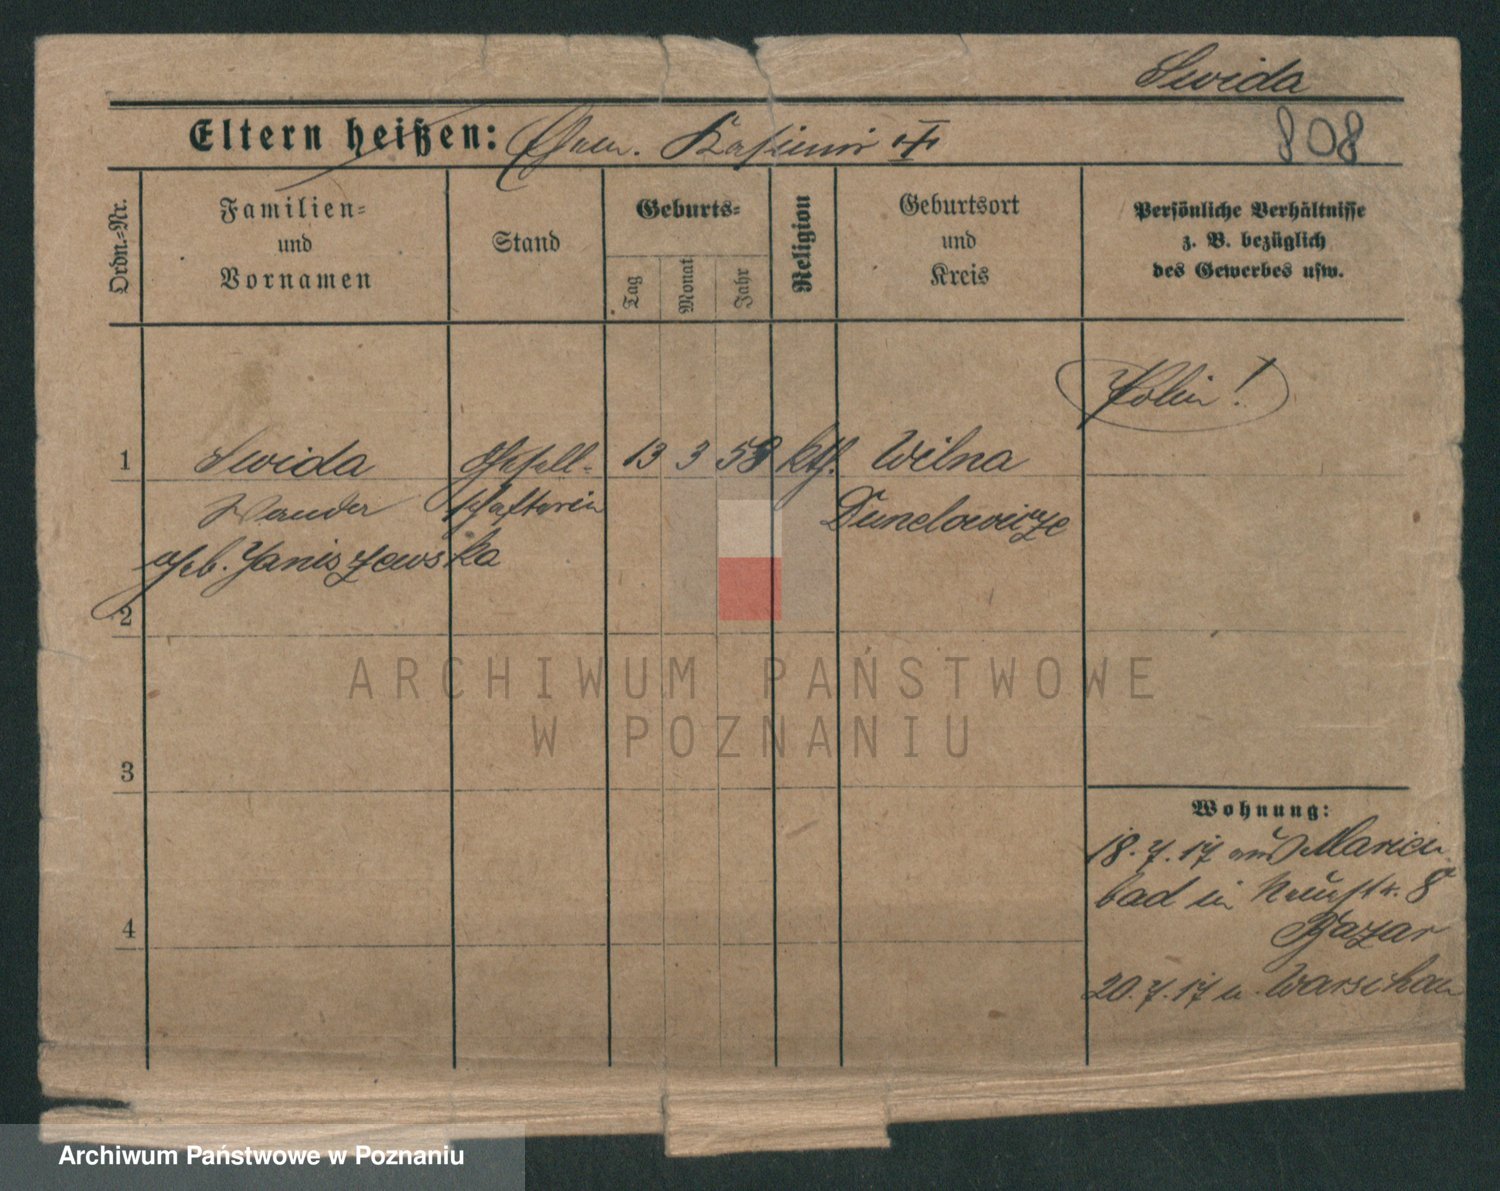 Swida
Eltern heißen: Ehem. Kasimir
808
Ordn.=Nr.
Familien=
und
Vornamen
Stand
Geburts=
Tag
Monat
Jahr
Religion
Geburtsort
und
Kreis
Persönliche Verhältnisse
z. B. bezüglich
des Gewerbes usw.
Polin!
1 Swida Gesell- 13 3 58 kth. Wilna
Wanda schafterin Dunelowicze
geb. Janiszewska
2
3
4
Wohnung:
18.7.17 aus Marien
bad in Neustr. 8
Bazar
20.7.17 n. Warschau
ARCHIWUM PAŃSTWOWE
W POZNANIU
Archiwum Państwowe w Poznaniu